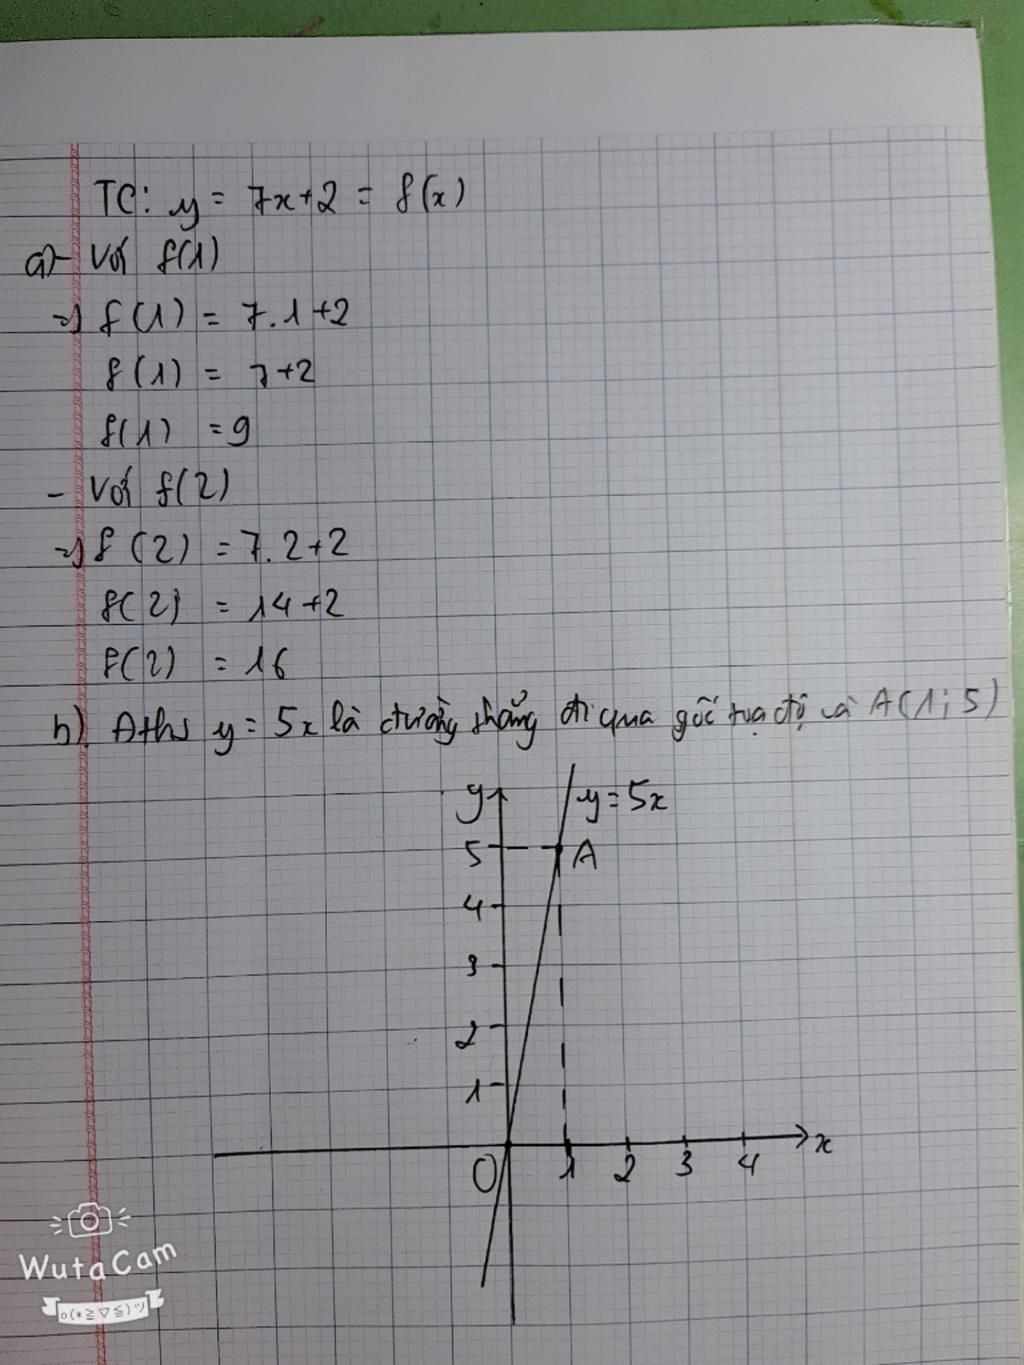 TC: y = 7x+2 = f(x)
a)- Với f(1)
=) f(1) = 7.1+2
f(1) = 7+2
f(1) = 9
- Với f(2)
=) f(2) = 7.2+2
f(2) = 14+2
f(2) = 16
b) Đths y = 5x là đường thẳng đi qua gốc tọa độ và A(1;5)
y
y=5x
5
A
4
3
2
1
O
1 2 3 4 x
WutaCam
o(*≧▽≦)ツ